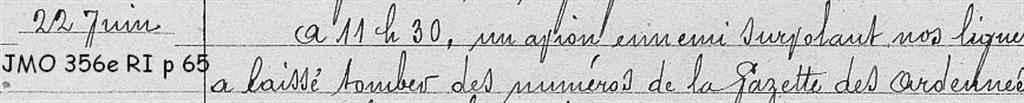 22 Juin
A 11 h 30, un avion ennemi survolant nos lignes
JMO 356e RI p 65
a laissé tomber des numéros de la Gazette des Ardennes